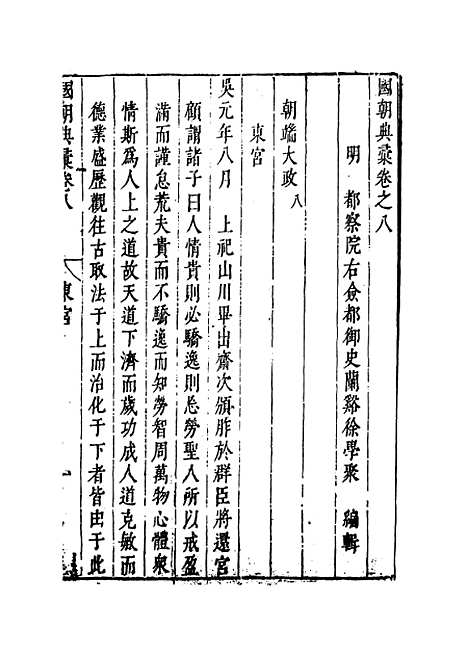 國朝典彚卷之八
明　都察院右僉都御史蘭谿徐學聚　編輯
朝端大政 八
東宮
吳元年八月　上祀山川畢出齋次頒胙於群臣將還宮
顧謂諸子曰人情貴則必驕逸則忘勞聖人所以戒盈
滿而謹怠荒夫貴而不驕逸而知勞智周萬物心體衆
情斯爲人上之道故天道下濟而歲功成人道克敏而
德業盛歷觀往古取法于上而治化于下者皆由于此
國朝典彚卷八　東宮　一